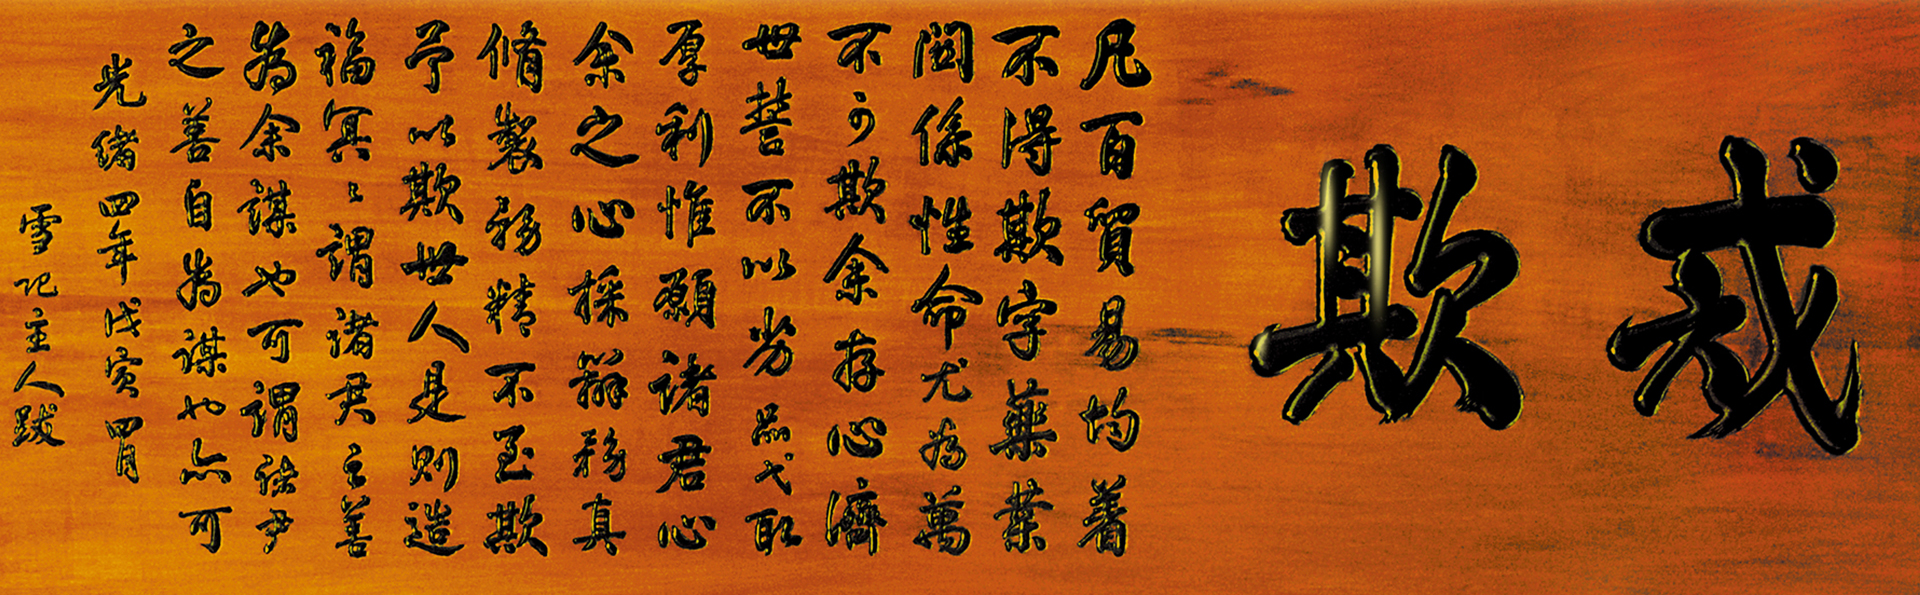 戒欺
凡百貿易均著
不得欺字藥業
關係性命尤為萬
不可欺余存心濟
世誓不以劣品弋取
厚利惟願諸君心
余之心採辦務真
脩製務精不至欺
予以欺世人是則造
福冥冥謂諸君之善
為余謀也可謂諸君
之善自為謀也亦可
光緒四年戊寅四月
雪記主人跋